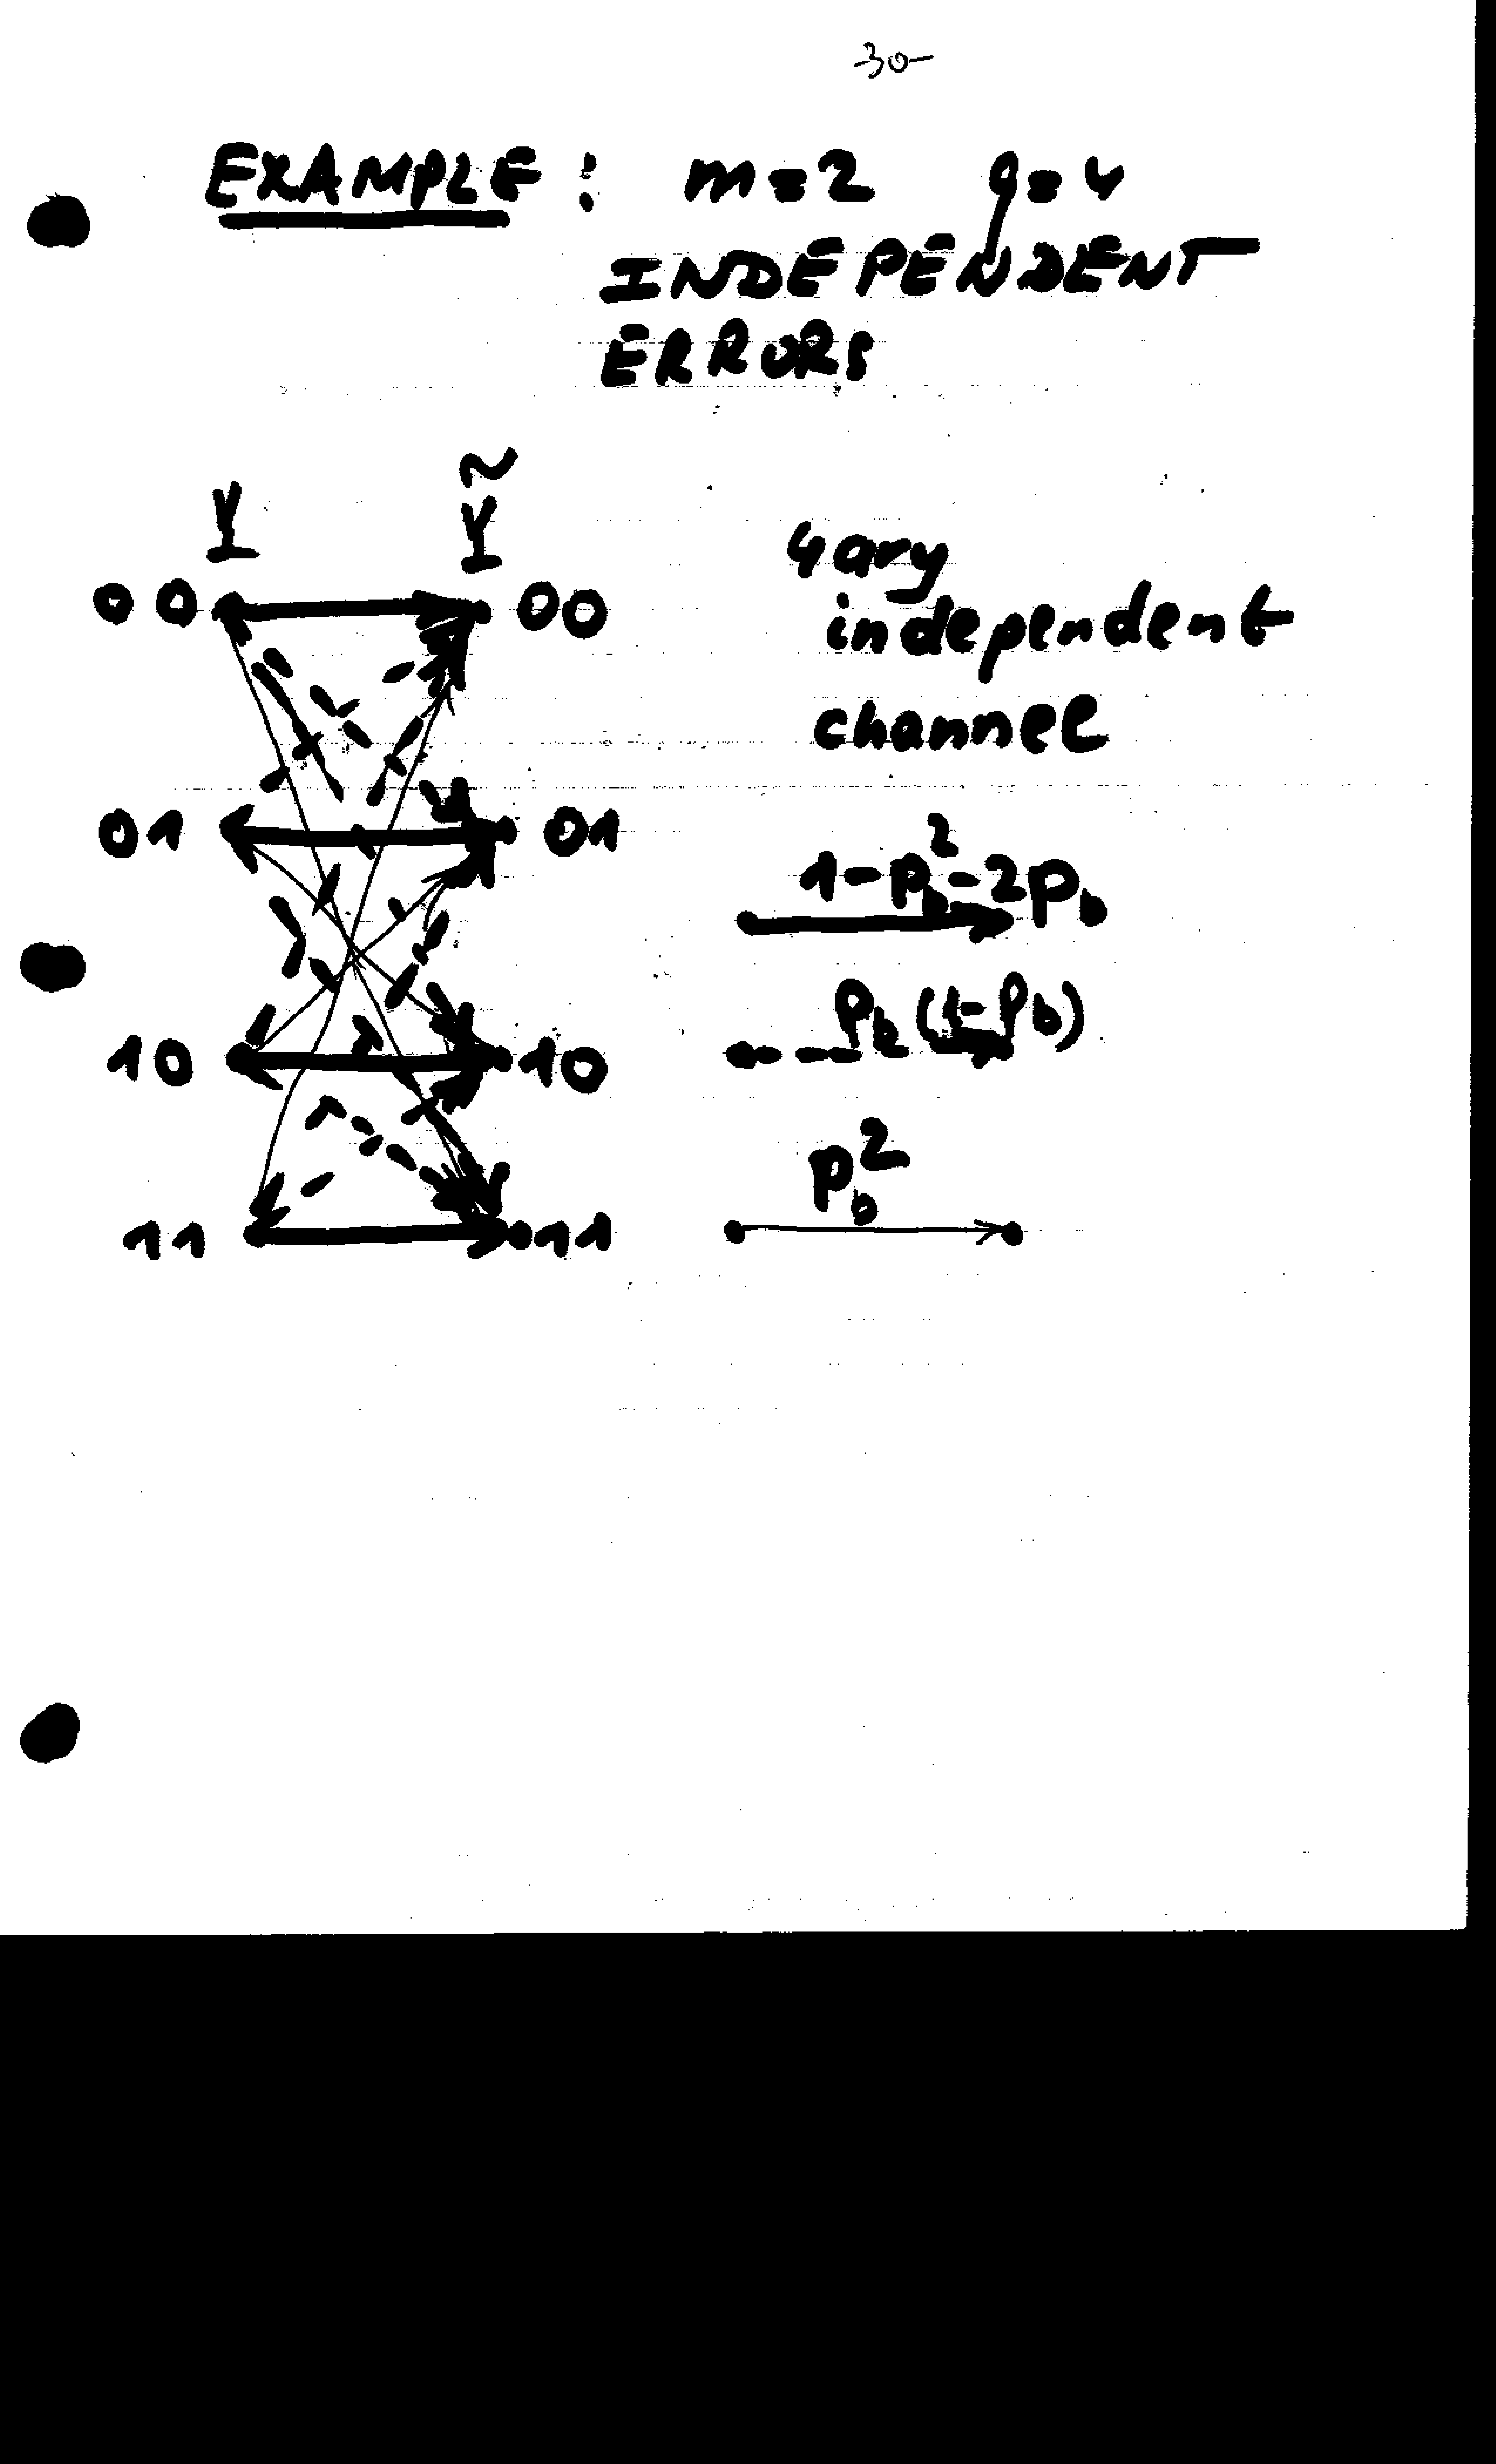 -30-
EXAMPLE: m=2 q=4
INDEPENDENT
ERRORS
Y Ỹ
00 00
01 01
10 10
11 11
4ary
independent
channel
1-p_b^2-2p_b
p_b(1-p_b)
p_b^2